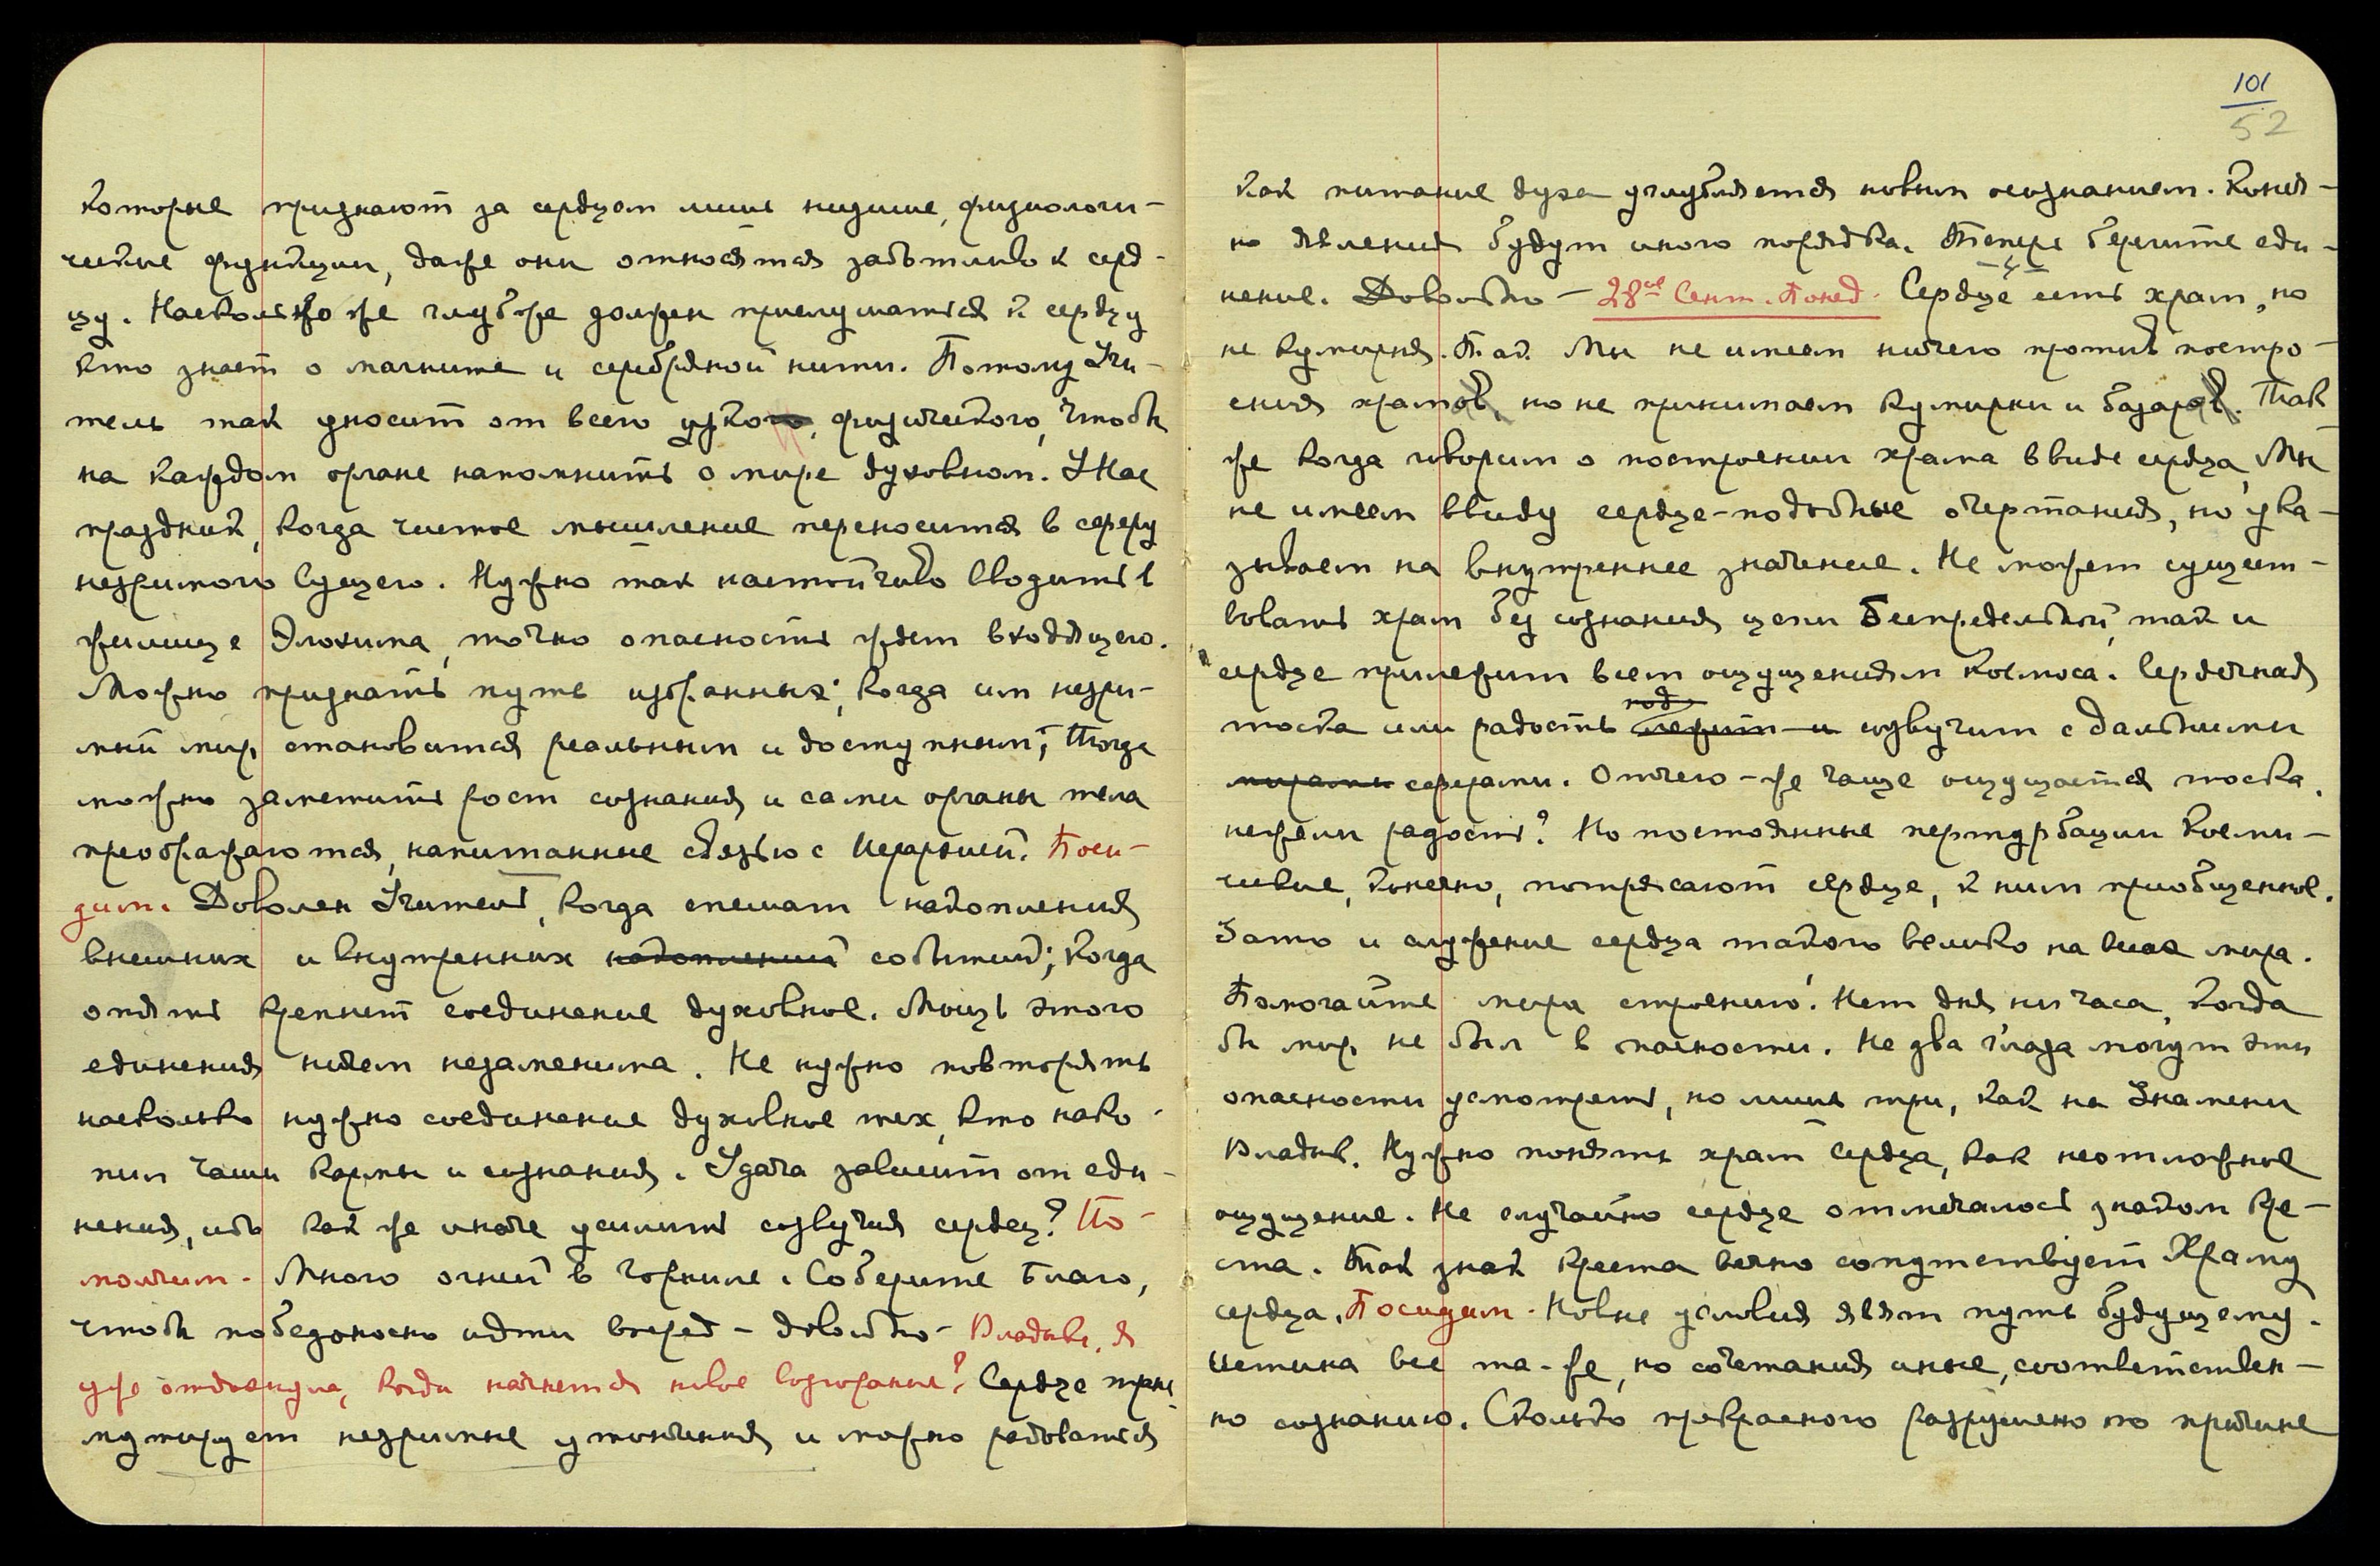 которые признают за сердцем лишь низшие, физиологи-
ческие функции, даже они относятся заботливо к серд-
цу. Насколько же глубже должен прислушаться к сердцу
кто знает о магните и серебряной нити. Потому Учи-
тель так уносит от всего узко, физического, чтобы
на каждом органе напомнить о мире духовном. У Нас
праздник, когда чистое мышление переносится в сферу
незримого Сущего. Нужно так настойчиво вводить в
жилище Элохима, точно опасность ждет входящего.
Можно признать путь избранных, когда им незри-
мый мир становится реальным и доступным; тогда
можно заметить рост сознания и сами органы тела
преображаются, напитанные связью с Иерархией. Поси-
дим. Доволен Учитель, когда спешат накопления
внешних и внутренних накоплений событий; когда
опять крепнет соединение духовное. Мощь этого
единения ничем незаменима. Не нужно повторять
насколько нужно соединение духовное тех, кто нако-
пил чаши кармы и сознания. Удача зависит от еди-
нения, ибо как же иначе усилить созвучия сердец? По-
молчим. Много огней в горниле. Соберите благо,
чтобы победоносно идти вперед - довольно - Владыка, я
уже отдохнула, когда начнется новое возгорание? Сердце транс
мутирует незримые утончения и можно радоваться
101
52
как питание духа углубляется новым осознанием. Конеч-
но явления будут иного порядка. Теперь берегите еди-
нение. Довольно - 28ое Сент. Понед. Сердце есть храм, но
не кумирня. Так Мы не имеем ничего против постро-
ения храмов, но не принимаем кумирни и базаров. Так
же когда говорим о построении храма в виде сердца, Мы
не имеем ввиду сердце-подобные очертания, но ука-
зываем на внутреннее значение. Не может сущест-
вовать храм без сознания цепи Беспредельной, так и
сердце прилежит всем ощущениям Космоса. Сердечная
под
тоска или радость лежит и созвучит с дальними
мирами сферами. Отчего-же чаще ощущается тоска,
нежели радость? Но постоянные пертурбации косми-
ческие, конечно, потрясают сердце, к ним приобщенное.
Зато и служение сердца такого велико на весах мира.
Помогайте мира строению! Нет дня ни часа, когда
бы мир не был в опасности. Не два глаза могут эти
опасности усмотреть, но лишь три, как на Знамени
Владык. Нужно понять храм Сердца, как неотложное
ощущение. Не случайно сердце отмечалось знаком кре-
ста. Так знак Креста вечно сопутствует Храму
сердца. Посидим. Новые условия явят путь будущему.
Истина все та-же, но сочетания иные, соответствен-
но сознанию. Сколько прекрасного разрушено по причине